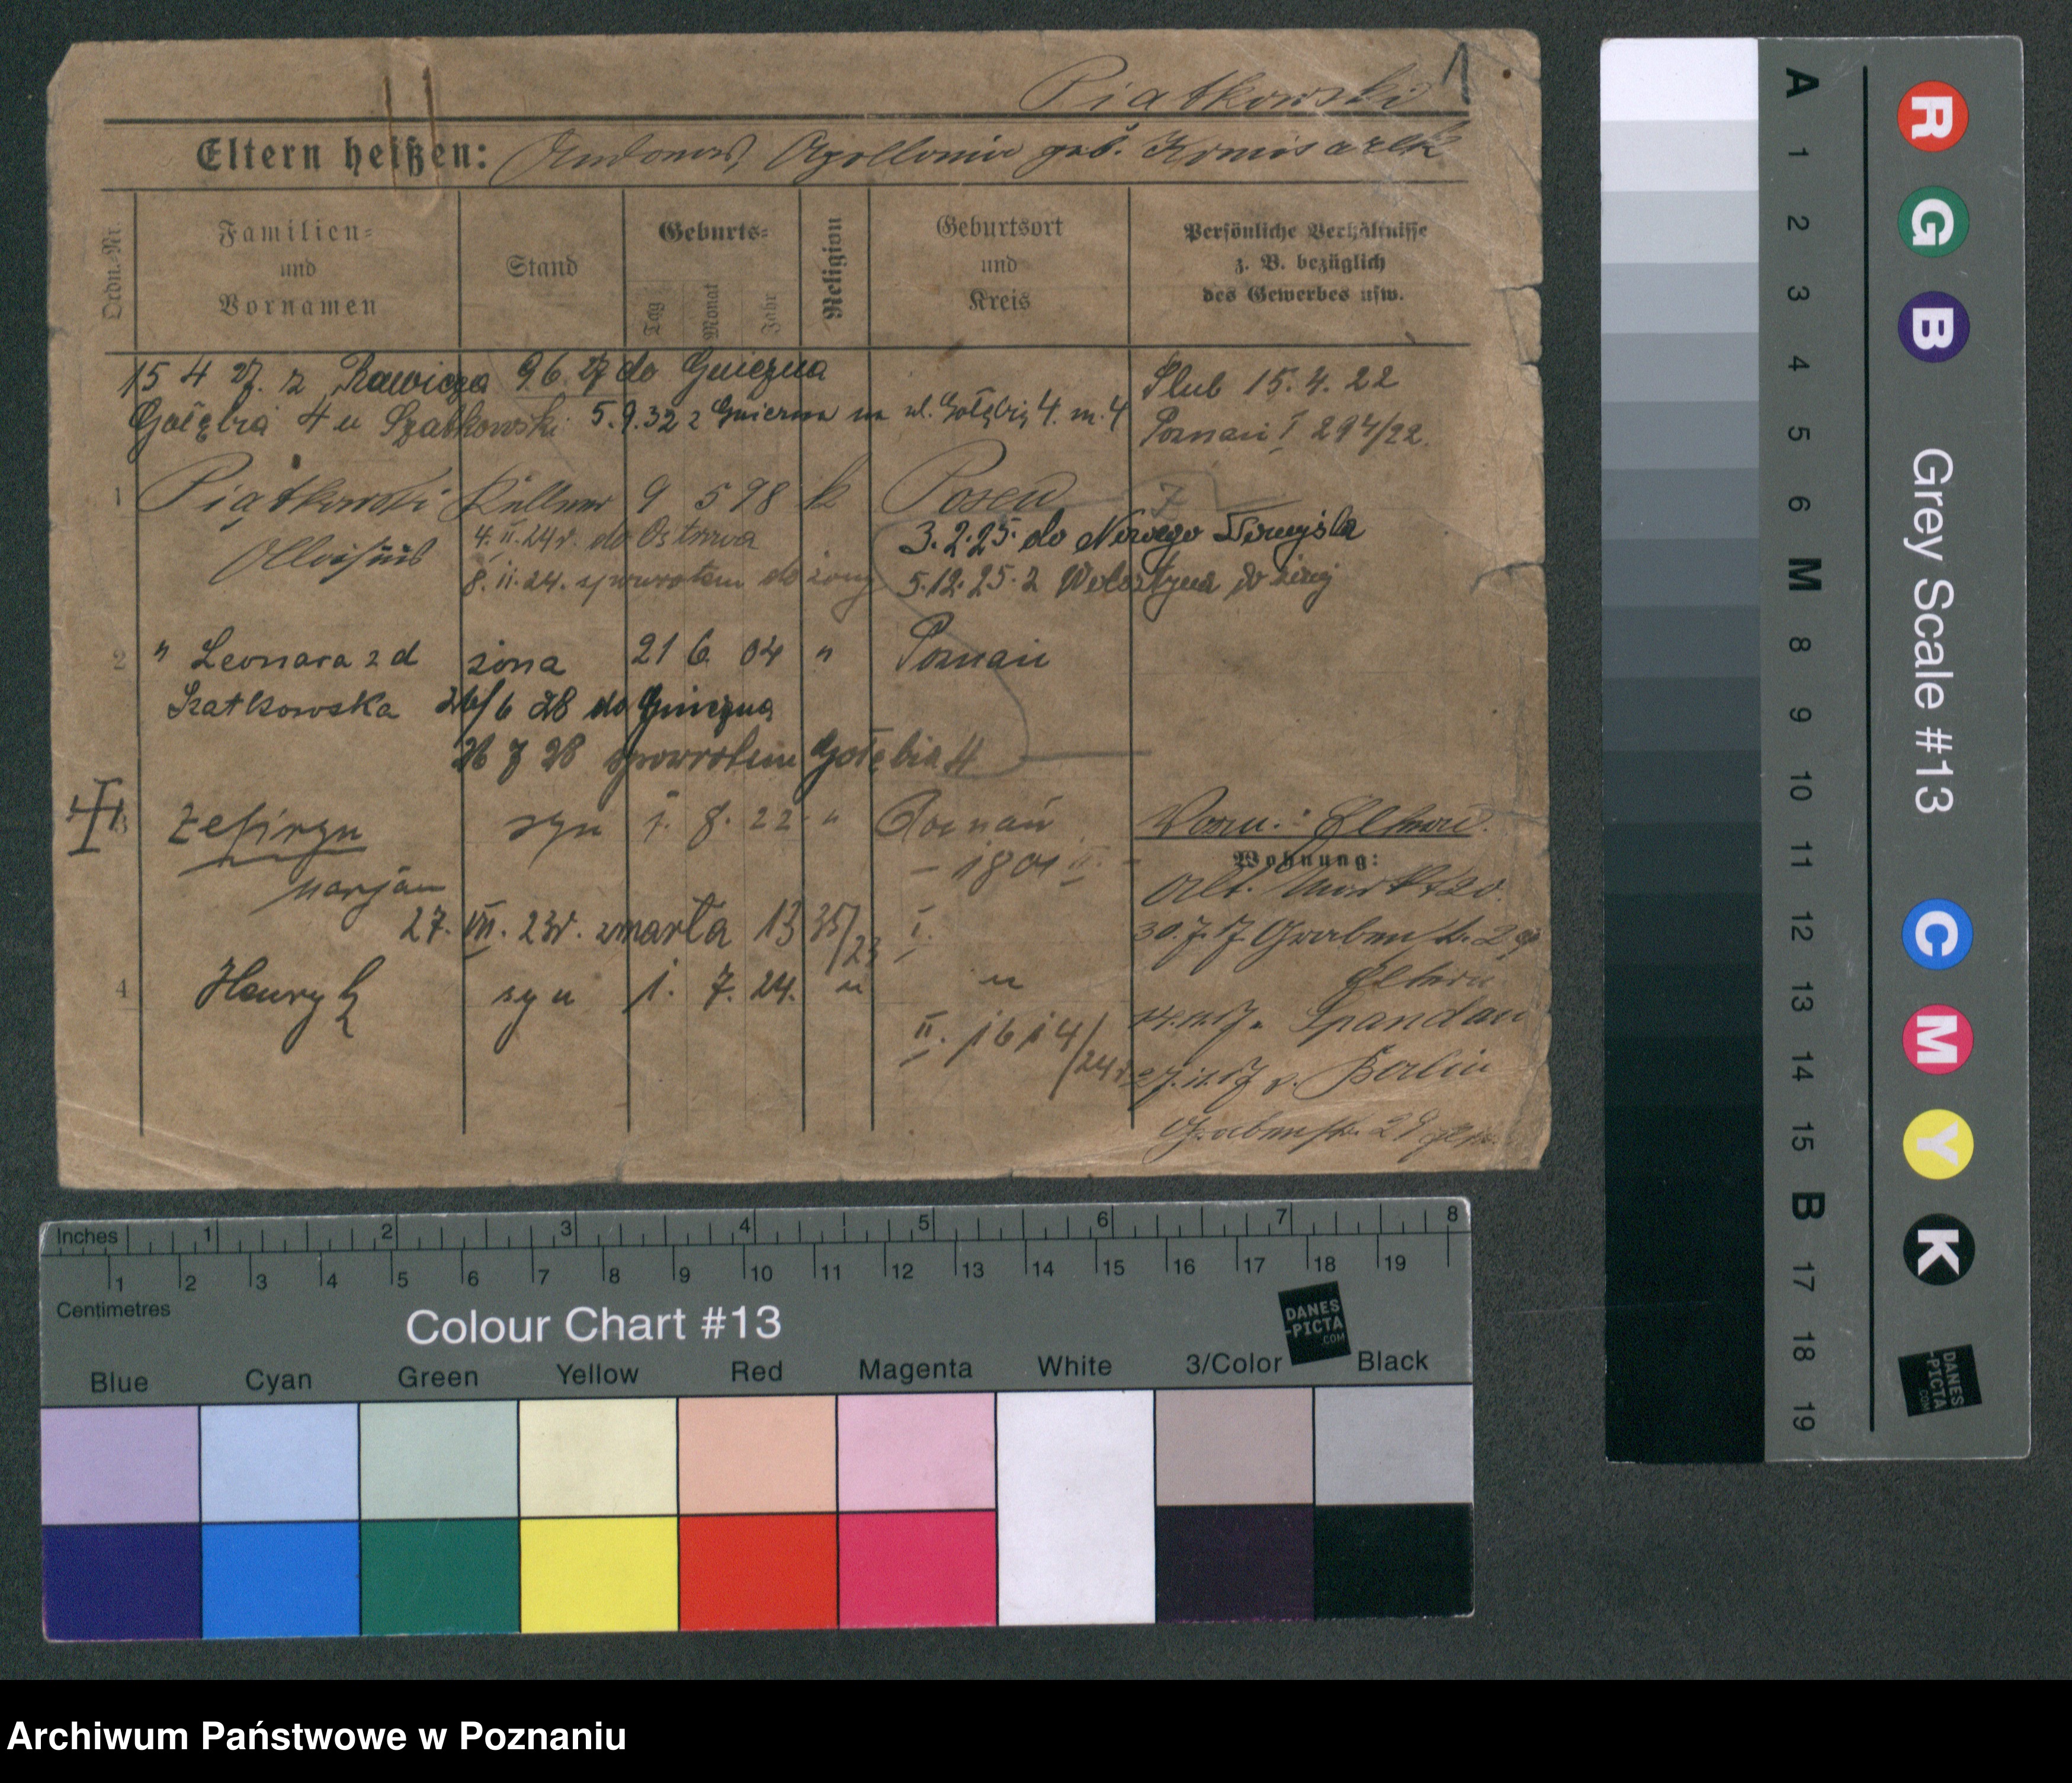 Piątkowski 1
Eltern heißen: Apollonia geb.
Ordn.-Nr.
Familien- und Vornamen
Stand
Geburts-
Tag Monat Jahr
Religion
Geburtsort und Kreis
Persönliche Verhältnisse z. B. bezüglich des Gewerbes usw.
15 4 27. z Rawicza 9 6. 27 do Gniezna
Gołębia 4 u 5.9.32 z Gniezna na ul. Gołębią 4. m. 4
Ślub 15. 4. 22
Poznań I 294/22.
1 Piątkowski Kellner 9 5 98 k Posen
4. II. 24r. do Ostrowa
3. 2. 25. do Nowego Tomyśla
8. II. 24. spowrotem do żony
5.12.25. z Wolsztyna do żony
2 " Leonara z d żona 21 6 04 " Poznań
Szatkowska 26/6 28 do Gniezna
26 7 28 spowrotem Gołębia 4
3 Zefiryn syn 1. 8. 22 " Poznań
Marjan
27. VII. 23r. zmarła 13 35/23 I.
4 Henryk syn 1. 7. 24. " "
II. 1614/24r
Wohnung:
Alt. Markt
30.7.17. Grabenstr.
Eltern
Spandau
v. Berlin
Grabenstr. 29
Grey Scale #13
A 1 2 3 4 5 6 M 8 9 10 11 12 13 14 15 B 17 18 19
R G B C M Y K
DANES
-PICTA
.COM
Inches 1 2 3 4 5 6 7 8
1 2 3 4 5 6 7 8 9 10 11 12 13 14 15 16 17 18 19
Centimetres
Colour Chart #13
DANES
-PICTA
.COM
Blue Cyan Green Yellow Red Magenta White 3/Color Black
Archiwum Państwowe w Poznaniu